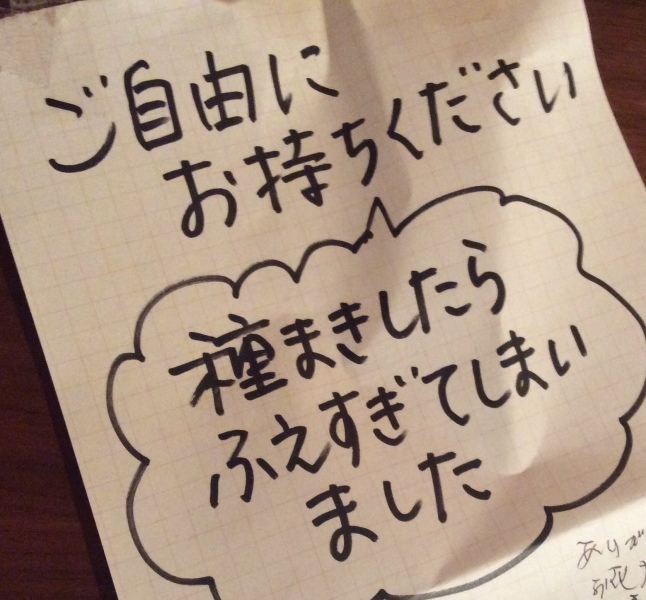 ご自由に
お持ちください
種まきしたら
ふえすぎてしまい
ました